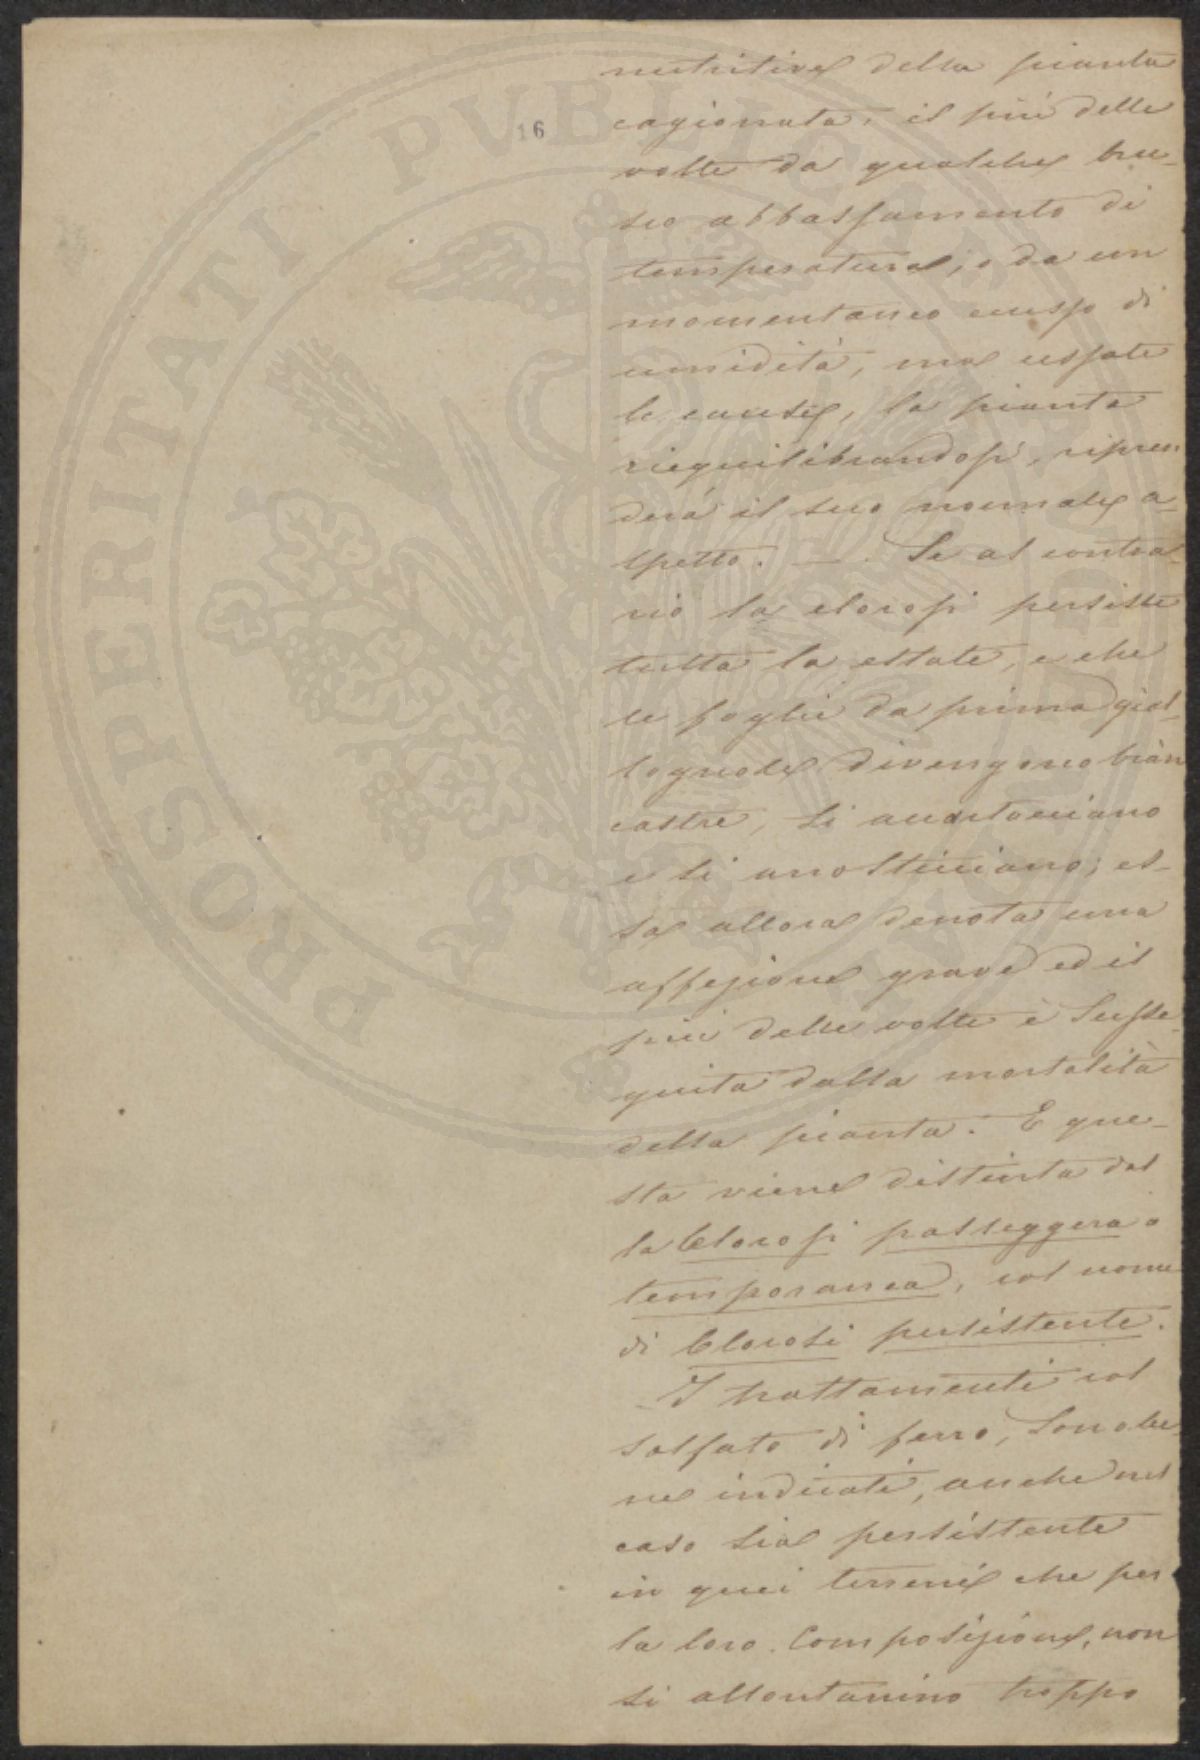 16
nutritive della pianta
cagionata, il più delle
volte da qualche bru-
sco abbassamento di
temperatura, o da un
momentaneo eccesso di
umidità, ma cessate
le cause, la pianta
riequilibrandosi, ripren
derà il suo normale a-
spetto. — Se al contra-
rio la clorosi persiste
tutta la estate, e che
le foglie da prima gial-
lognole divengono bian
castre, si accartocciano
e si arrosticciano; es-
sa allora denota una
affezione grave ed il
più delle volte è susse-
guita dalla mortalità
della pianta. E que-
sta viene distinta dal
la Clorosi passeggera o
temporanea, col nome
di Clorosi persistente.
I trattamenti col
solfato di ferro, sono be
ne indicati, anche nel
caso sia persistente
in quei terreni che per
la loro composizione, non
si allontanino troppo
PROSPERITATI PVBLICAE